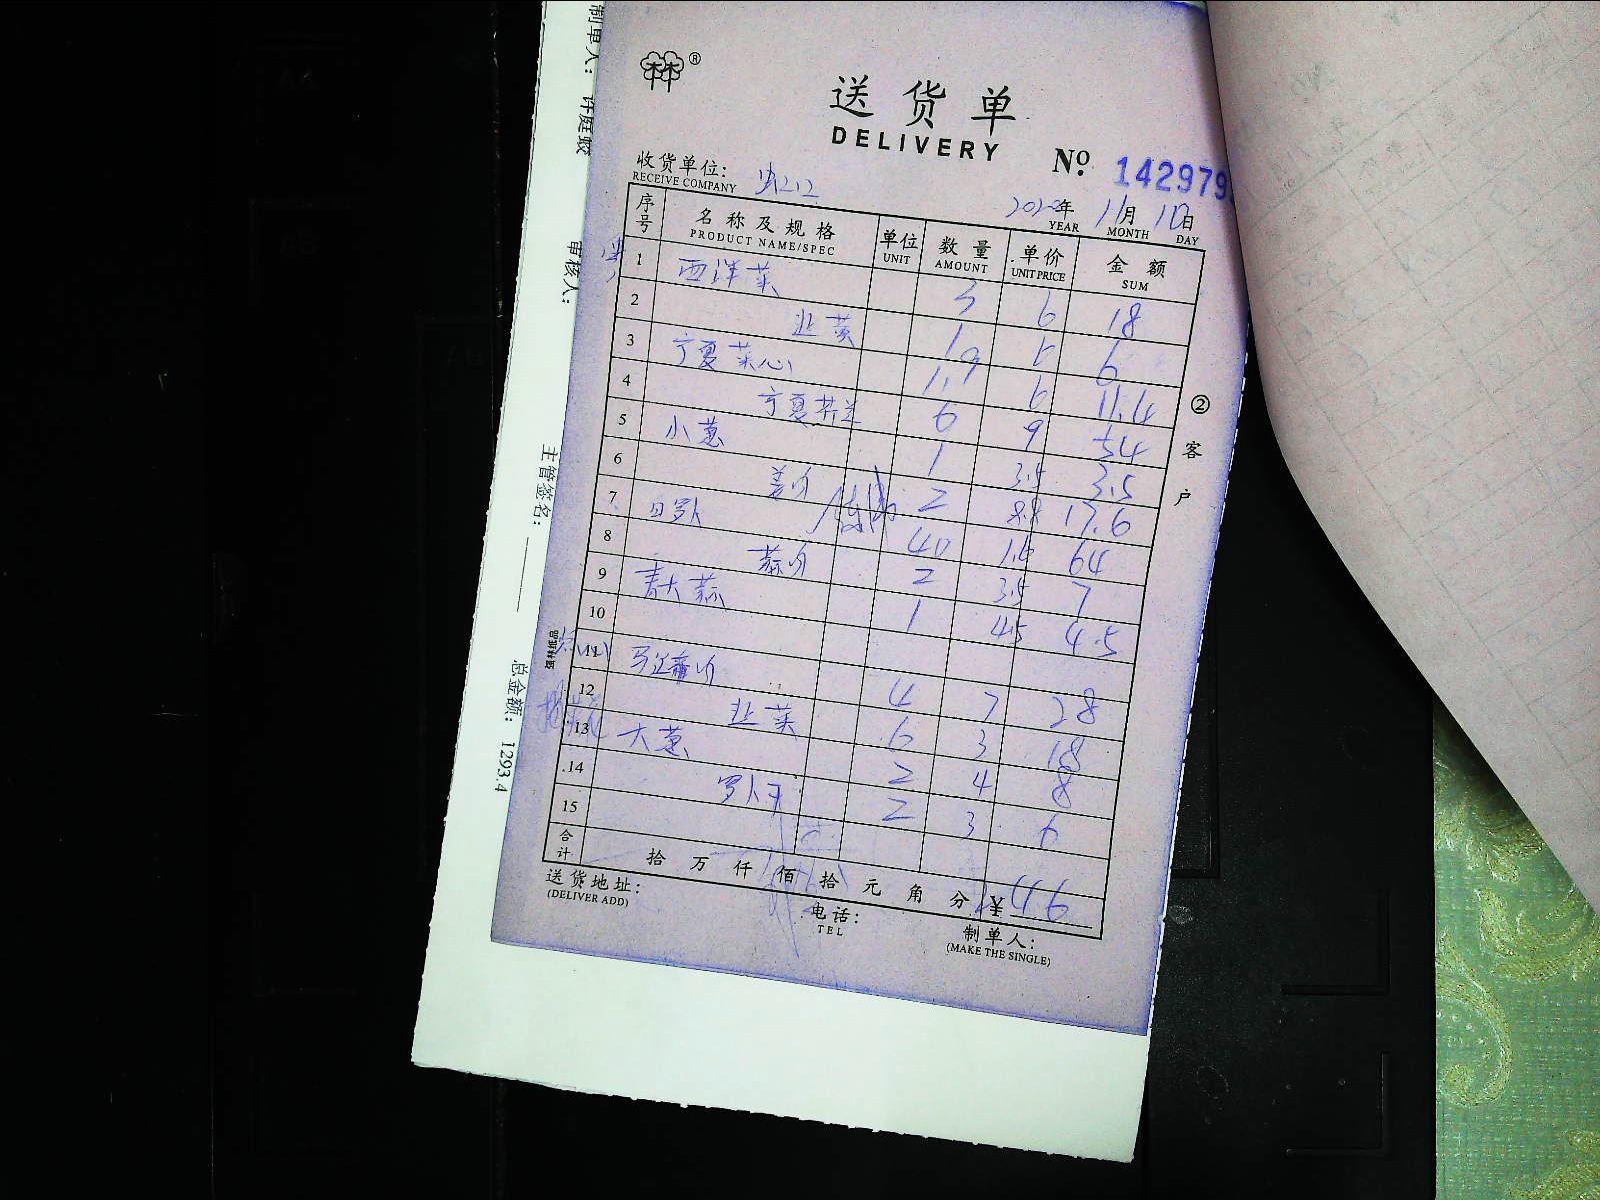 送货单
DELIVERY
№ 142979
收货单位:
RECEIVE COMPANY
2020年 11月 10日
YEAR MONTH DAY
序号 名称及规格 单位 数量 单价 金额
PRODUCT NAME/SPEC UNIT AMOUNT UNIT PRICE SUM
1 西洋菜 3 6 18
2 韭黄 1 6
3 宁夏菜心 1.9 6 11.4
4 宁夏芥兰 6 9 54
5 小葱 1 3.5 3.5
6 姜 2 8.8 17.6
7 白罗卜 40 1.6 64
8 蒜 2 3.5 7
9 青大蒜 1 4.5 4.5
10
11 4 7 28
12 韭菜 6 3 18
13 大葱 2 4 8
14 罗卜干 2 3 6
15
合计 拾万仟佰拾元角分 ¥ 246
送货地址:
(DELIVER ADD)
电话:
TEL
制单人:
(MAKE THE SINGLE)
②客户
制单人:
审核人:
主管签名:
总金额: 1293.4